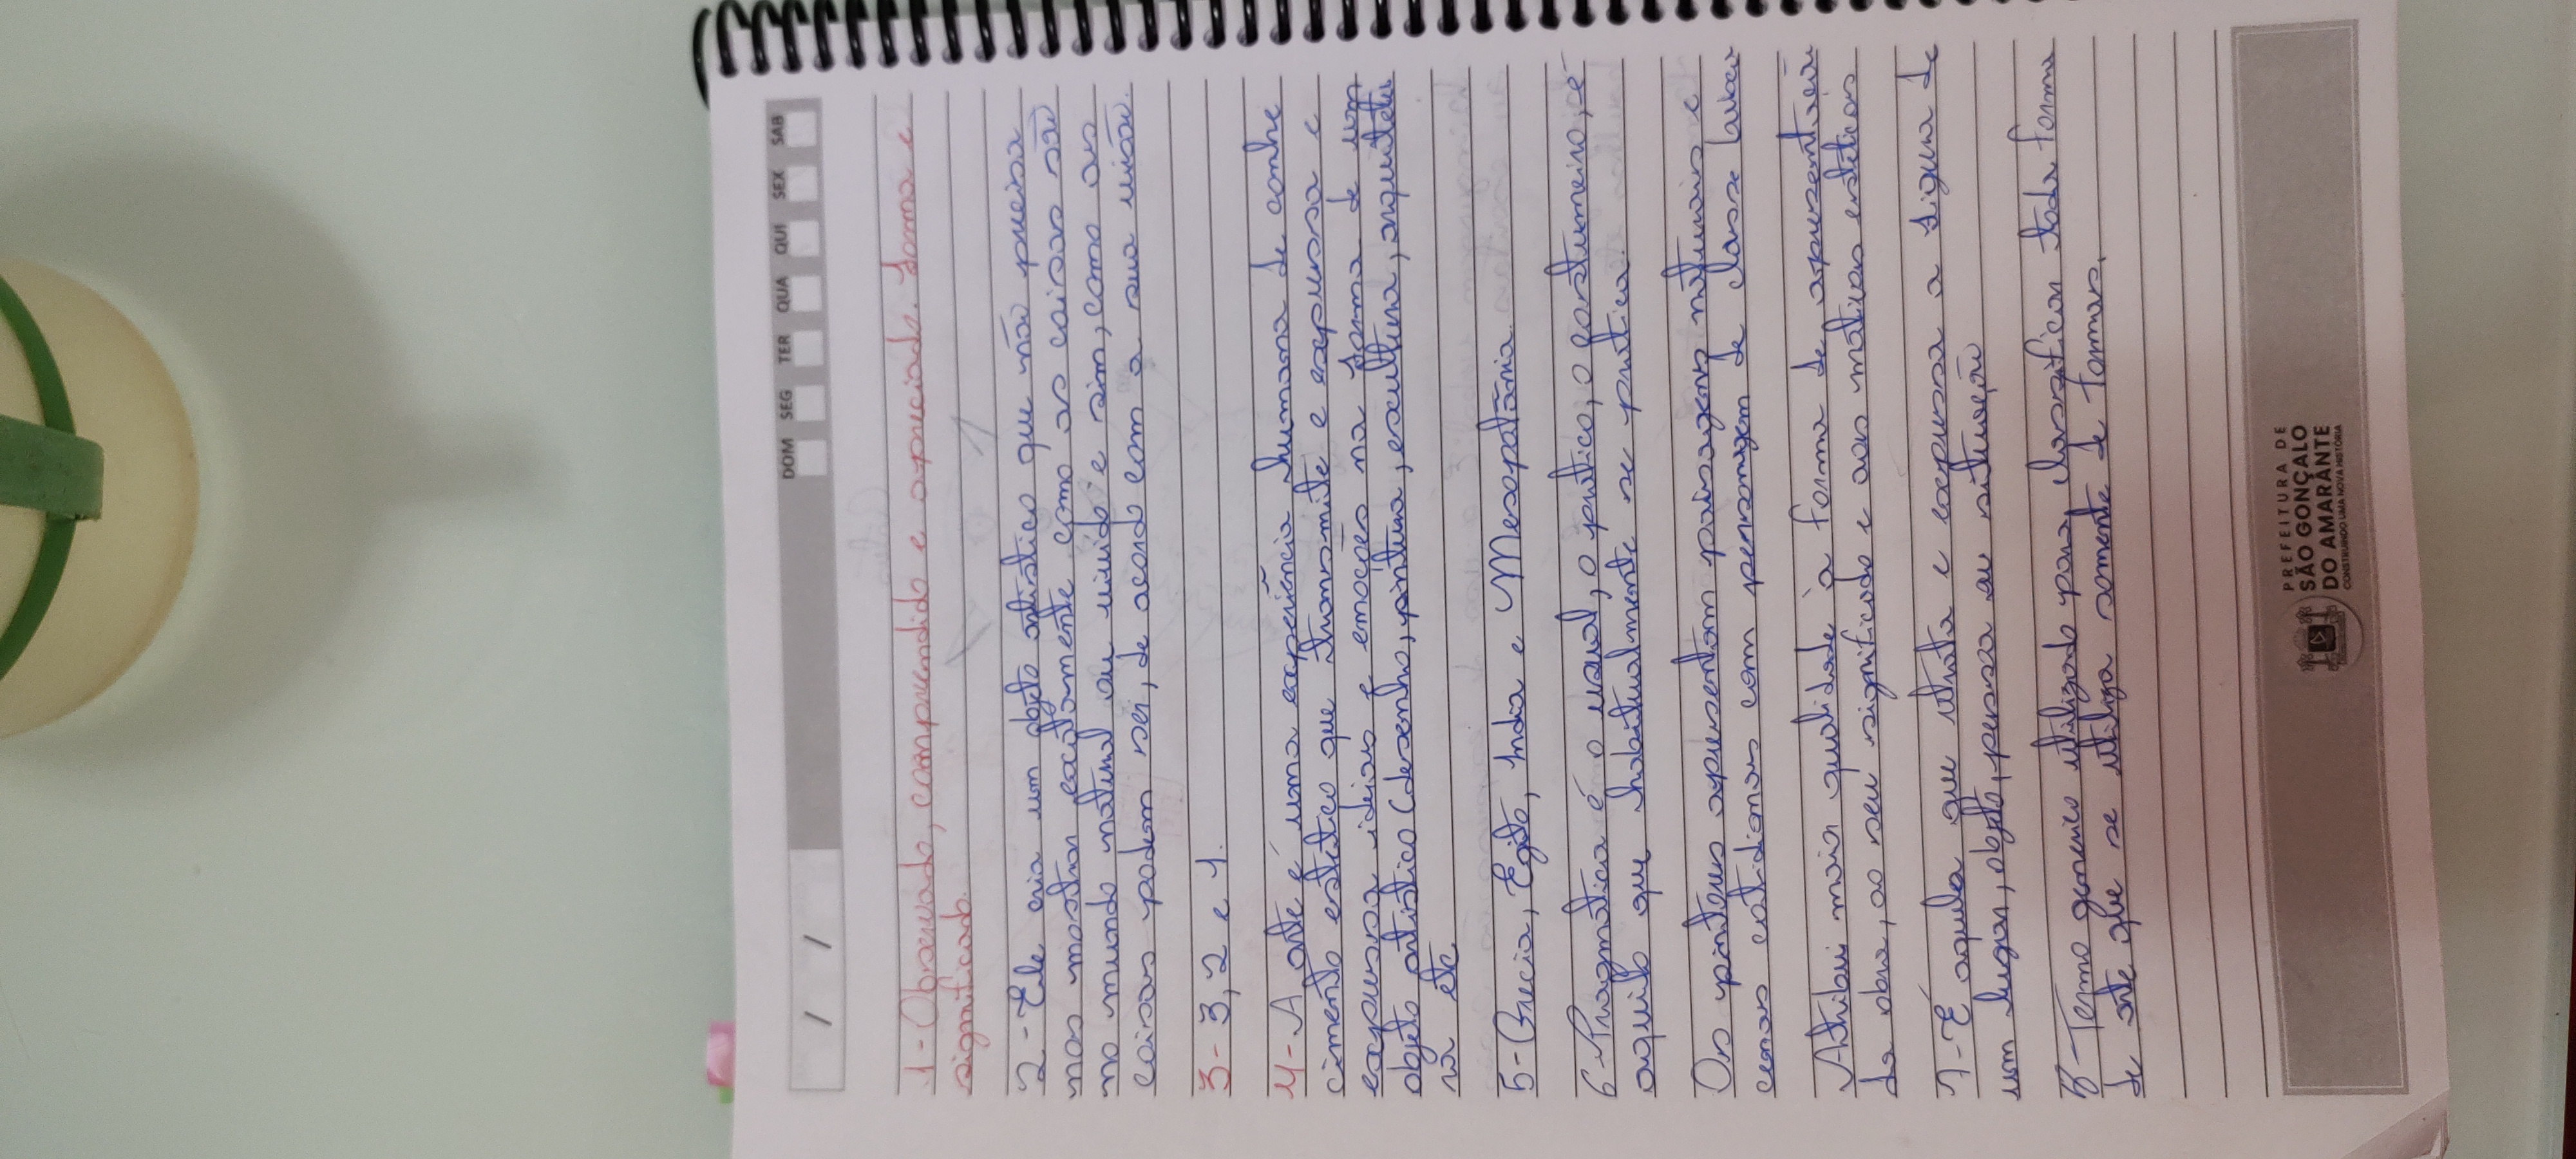 DOM SEG TER QUA QUI SEX SAB
/ /
1-Observado, compreendido e apreciado. Forma e
significado.
2-Ele cria um objeto artístico que não precisa
nos mostrar exatamente como as coisas são
no mundo natural ou vivido e sim, como as
coisas podem ser, de acordo com a sua visão.
3- 3, 2 e 1.
4-A arte é uma experiência humana de conhe
cimento estético que transmite e expressa e
expressa ideias e emoções na forma de um
objeto artístico (desenho, pintura, escultura, arquitetu
ra etc
5-Grécia, Egito, India e Mesopotâmia.
6-Pragmática é o usual, o prático, o costumeiro, é
aquilo que habitualmente se pratica.
Os pintores apresentam paisagens naturais e
cenas cotidianas com personagem de classe baixa
Atribui maior qualidade à forma de apresentação
da obra, ao seu significado e aos motivos estéticos
7-É aquela que retrata e expressa a figura de
um lugar, objeto, pessoa ou situação
8-Termo generico utilizado para classificar toda forma
de arte que se utiliza somente de formas,
PREFEITURA DE
SÃO GONÇALO
DO AMARANTE
CONSTRUINDO UMA NOVA HISTÓRIA